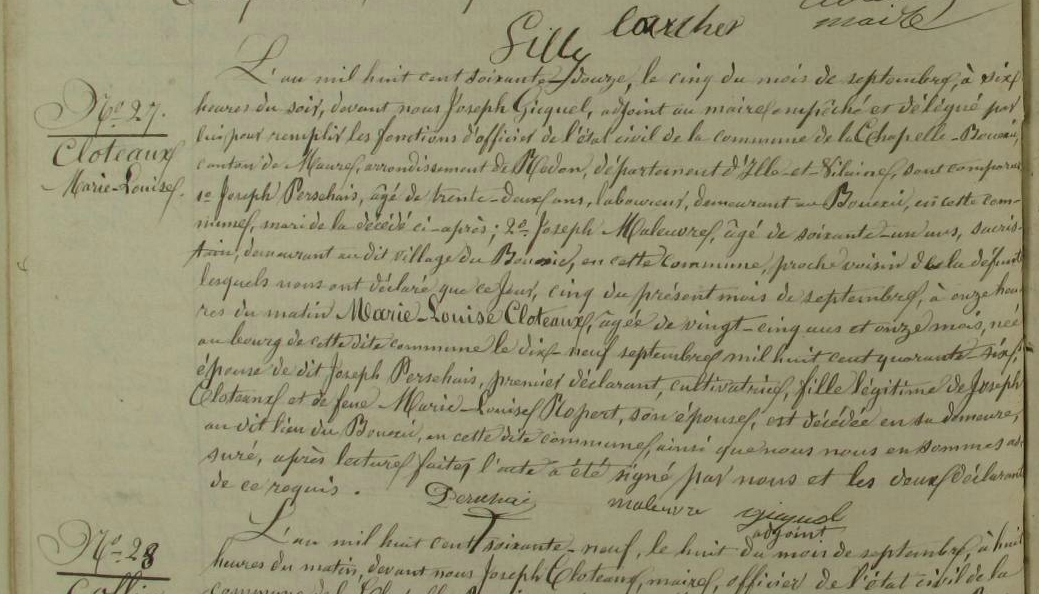 maire
Larcher
Gilly
L'an mil huit cent soixante-douze, le cinq du mois de septembre, à six
heures du soir, devant nous Joseph Gicquel, adjoint au maire empêché et délégué par
lui pour remplir les fonctions d'officier de l'état civil de la commune de la Chapelle-Bouexic,
canton de Maure, arrondissement de Redon, département d'Ille-et-Vilaine, sont comparus
1o Joseph Persehais, âgé de trente-deux ans, laboureur, demeurant au Bouexic, en cette com-
mune, mari de la décédé ci-après; 2o Joseph Maleuvre, âgé de soixante-un ans, sacris-
tain, demeurant au dit village du Bouexic, en cette commune, proche voisin de la défunte
lesquels nous ont déclaré que ce jour, cinq du présent mois de septembre, à onze heu-
res du matin Marie-Louise Cloteaux, âgée de vingt-cinq ans et onze mois, née
au bourg de cette dite commune le dix-neuf septembre mil huit cent quarante-six,
épouse de dit Joseph Persehais, premier déclarant, cultivatrice, fille légitime de Joseph
Cloteaux et de feue Marie-Louise Ropert, son épouse, est décédée en sa demeure,
au dit lieu du Bouexic, en cette dite commune, ainsi que nous nous en sommes as-
suré, après lecture faite, l'acte a été signé par nous et les deux déclarants
de ce requis.
Persehais maleuvre gicquel
adjoint
No 27.
Cloteaux
Marie-Louise.
No 28
L'an mil huit cent soixante-neuf, le huit du mois de septembre, à huit
heures du matin, devant nous Joseph Cloteaux, maire, officier de l'état civil de la